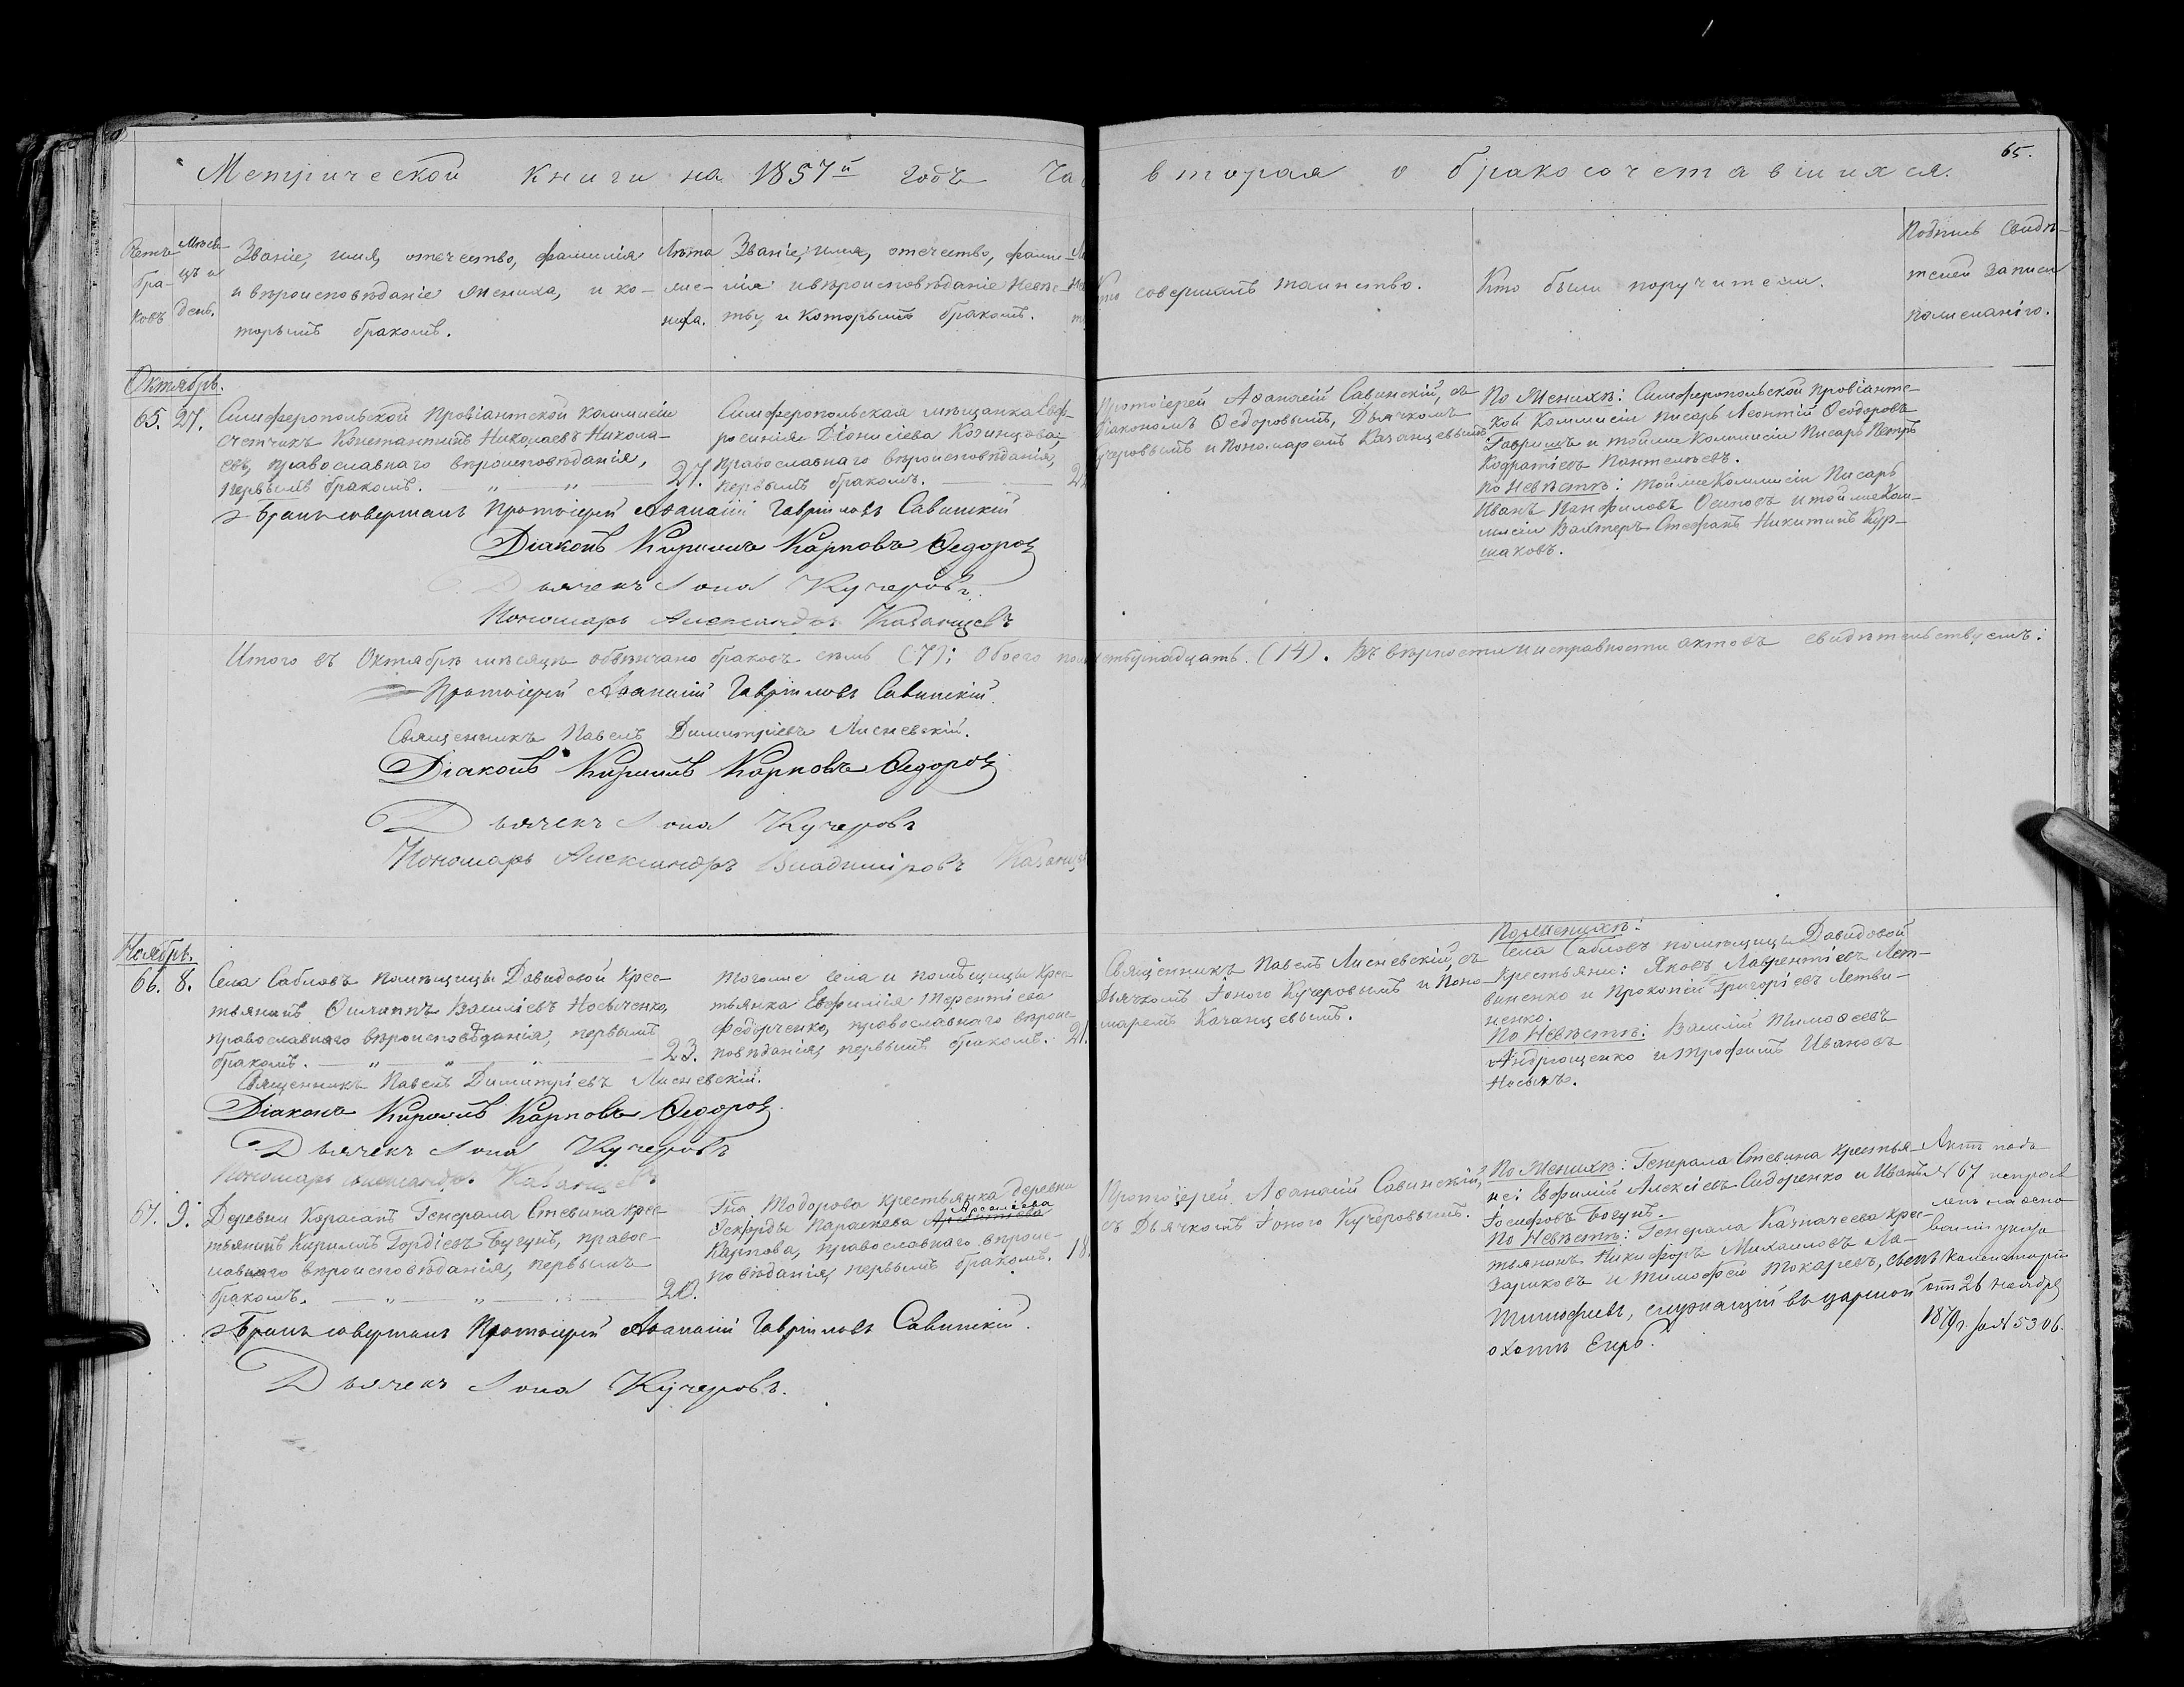 65.
Метрической книги на 1857й годъ Ча вторая о бракосочетавшихся.
Счетъ бра-ковъ
Мѣся-цъ и день.
Званіе, имя, отечество, фамилія
и вѣроисповѣданіе жениха, и ко-
торымъ бракомъ.
Лѣта
же-
ниха.
Званіе, имя, отечество, фами-
лія и вѣроисповѣданіе невѣс-
ты, и которымъ бракомъ.
Кто совершалъ таинство.
Кто были поручители.
Подпись свидѣ-
телей записи
по желанію.
Октябрь.
65. 27. Симферопольской Провіантской коммисіи
счетчикъ Константинъ Николаевъ Никола-
евъ, православнаго вѣроисповѣданія,
первымъ бракомъ. 27.
Симферопольская мѣщанка Евф-
росинія Діонисіева Козинцова,
православнаго вѣроисповѣданія,
первымъ бракомъ.
Протоіерей Аѳанасій Савинскій, съ
Діакономъ Ѳедоровымъ, Дьячкомъ
Кучеровымъ и Пономаремъ Казанцевымъ
По Женихѣ: Симферопольской Провіантс-
кой Коммисіи писарь Леонтій Ѳеодоровъ
Гавришъ и тойже Коммисіи Писарь Петръ
Кодратіевъ Пантелѣевъ.
По Невѣстѣ: тойже Коммисіи Писарь
Иванъ Панфиловъ Осиповъ и тойже Ком-
мисіи Вахтеръ Стефанъ Никитинъ Кур-
шаковъ.
Бракъ совершалъ Протоіерей Аѳанасій Гавріиловъ Савинскій
Діаконъ Кириллъ Карповъ Ѳедоровъ
Дьячекъ Іона Кучеровъ.
Пономарь Александръ Казанцевъ
Итого въ Октябрѣ мѣсяцѣ обвѣнчано браковъ семь (7); обоего пола четырнадцать. (14). Въ вѣрности и исправности актовъ свидѣтельствуемъ:
Протоіерей Аѳанасій Гавріиловъ Савинскій.
Священникъ Павелъ Димитріевъ Лисневскій.
Діаконъ Кириллъ Карповъ Ѳедоровъ
Дьячекъ Іона Кучеровъ
Пономарь Александръ Владиміровъ Казанцевъ
Ноябрь.
66. 8. Села Сабловъ помѣщицы Давидовой крес-
тьянинъ Филиппъ Василіевъ Носыченко,
православнаго вѣроисповѣданія, первымъ
бракомъ. 23.
Тогоже села и помѣщицы крес-
тьянка Евфимія Терентіева
Федорченко, православнаго вѣроис-
повѣданія, первымъ бракомъ. 21.
Священникъ Павелъ Лисневскій, съ
Дьячкомъ Іоною Кучеровымъ и Поно-
маремъ Казанцевымъ.
По Женихѣ:
Села Сабловъ помѣщицы Давидовой
крестьяни: Яковъ Лаврентіевъ Лет-
виненко и Прокопій Григоріевъ Летви-
ненко.
По Невѣстѣ: Василій Тимоѳеевъ
Андрющенко и Трофимъ Ивановъ
Носыкъ.
Священникъ Павелъ Димитріевъ Лисневскій.
Діаконъ Кириллъ Карповъ Ѳедоровъ.
Дьячекъ Іона Кучеровъ
Пономарь Александръ Казанцевъ
67. 9. Деревни Карагачъ Генерала Стевина крес-
тьянинъ Кириллъ Гордіевъ Богунъ, правос-
лавнаго вѣроисповѣданія, первымъ
бракомъ. 20.
Гна Тодорова крестьянка деревни
Эскорды Параскева
Карпова, православнаго вѣроис-
повѣданія, первымъ бракомъ. 18.
Протоіерей Аѳанасій Савинскій,
съ Дьячкомъ Іоною Кучеровымъ.
По Женихѣ: Генерала Стевина крестья-
не: Евфимій Алексіевъ Сидоренко и Иванъ
Іосифовъ Богунъ.
По Невѣстѣ: Генерала Казначеева крес-
тьянинъ Никифоръ Михаиловъ Ла-
зариковъ и Тимофей Токаревъ,
Тимофеевъ, служащій въ царской
охотѣ Егерь.
Актъ подъ
№ 67 исправ-
ленъ на осно-
ваніи указа
Консисторіи
отъ 26 ноября
1879г. за № 5306.
Бракъ совершалъ Протоіерей Аѳанасій Гавріиловъ Савинскій.
Дьячекъ Іона Кучеровъ.